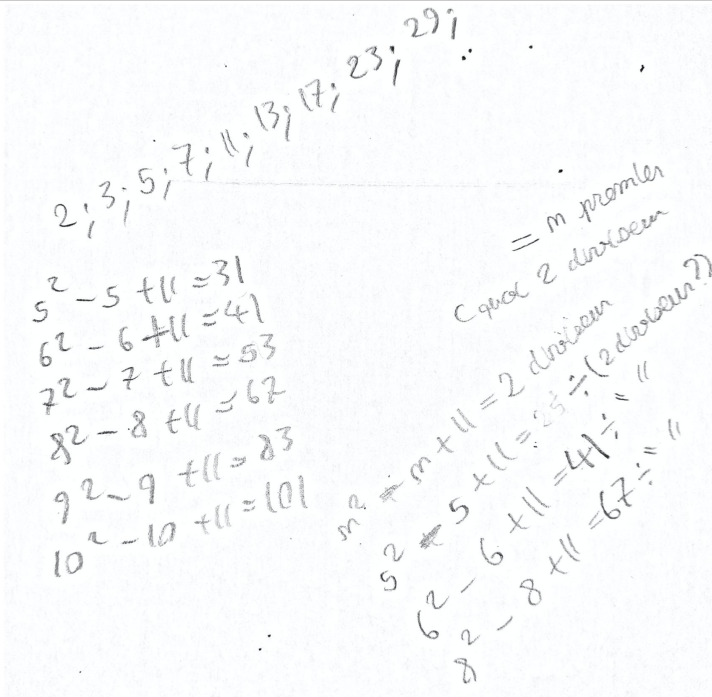 2; 3; 5; 7; 11; 13; 17; 23; 29;
5² - 5 + 11 = 31
6² - 6 + 11 = 41
7² - 7 + 11 = 53
8² - 8 + 11 = 67
9² - 9 + 11 = 83
10² - 10 + 11 = 101
= n premier
2 diviseur
n² - n + 11 = 2 diviseur
5² - 5 + 11 = ÷ (2 diviseur?)
6² - 6 + 11 = 41 ÷ = "
8² - 8 + 11 = 67 ÷ = "